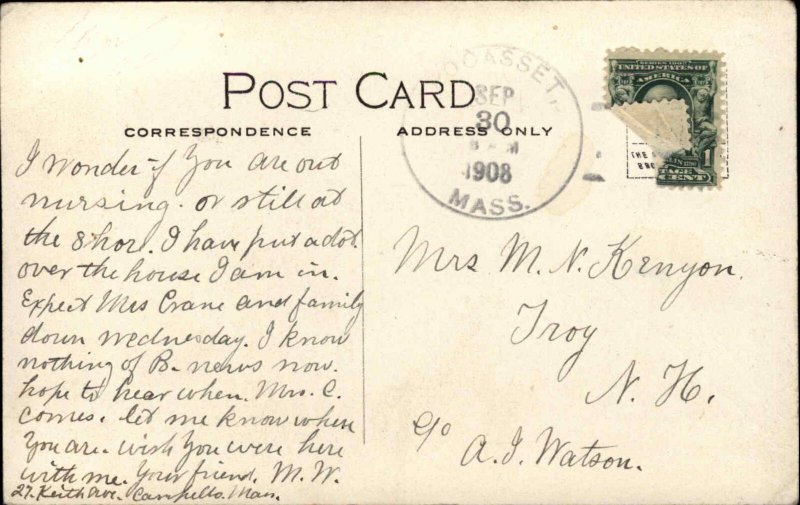 POST CARD
CORRESPONDENCE
ADDRESS ONLY
OCASSET,
SEP
30
M
1908
MASS.
SERIES 1902
UNITED STATES OF
AMERICA
1
CENT
THE
I wonder if You are out
nursing. or still at
the Shor. I have put a dot
over the house I am in.
Expect Mrs Crane and family
down wednesday. I know
nothing of B. news now.
hope to hear when. Mrs. C.
comes. let me know where
You are. wish You were here
with me. Your friend. M. W.
27. Keith Ave. Campello. Mass.
Mrs M. N. Kenyon.
Troy
N. H.
c/o
A. J. Watson.